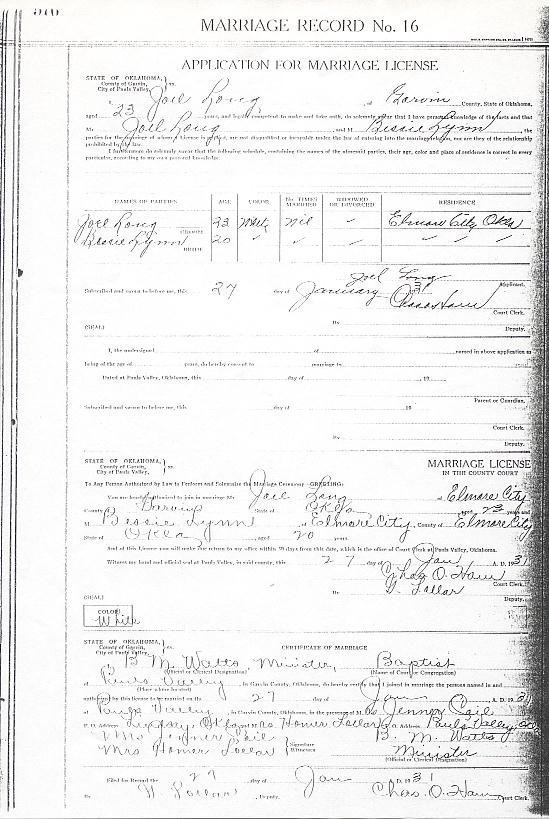 MARRIAGE RECORD No. 16
APPLICATION FOR MARRIAGE LICENSE
STATE OF OKLAHOMA,
County of Garvin, ss.
City of Pauls Valley,
I, Joel Long of Garvin County, State of Oklahoma,
aged 23 years, and legally competent to make and take oath, do solemnly swear that I have personal knowledge of the facts and that
Mr. Joel Long and M Bessie Lynn, the
parties for the marriage of whom a license is prayed, are not disqualified or incapable under the law of entering into the marriage relation, nor are they of the relationship
prohibited by the law.
I furthermore do solemnly swear that the following schedule, containing the names of the aforesaid parties, their age, color and place of residence is correct in every
particular, according to my own personal knowledge.
NAMES OF PARTIES AGE COLOR No. TIMES MARRIED WIDOWED OR DIVORCED RESIDENCE
Joel Long GROOM 23 White Nil Elmore City Okla
Bessie Lynn BRIDE 20 " " " " " "
Joel Long Applicant.
Subscribed and sworn to before me, this 27 day of January
Court Clerk.
By
Deputy.
(SEAL)
I, the undersigned of named in above application as
being of the age of years, do hereby consent to marriage to
Dated at Pauls Valley, Oklahoma, this day of , 19
Parent or Guardian.
Subscribed and sworn to before me, this day of 19
Court Clerk.
By
Deputy.
STATE OF OKLAHOMA,
County of Garvin, ss.
City of Pauls Valley,
MARRIAGE LICENSE
IN THE COUNTY COURT
To Any Person Authorized by Law to Perform and Solemnize the Marriage Ceremony—GREETING:
You are hereby authorized to join in marriage Mr. Joel Long of Elmore City
County of Garvin State of Okla aged 23 years and
M Bessie Lynn of Elmore City, County of Elmore City
State of Okla, aged 20 years.
And of this License you will make due return to my office within 30 days from this date, which is the office of Court Clerk at Pauls Valley, Oklahoma.
Witness my hand and official seal at Pauls Valley, in said county, this 27 day of Jan A. D. 1931
Chas O. Ham Court Clerk.
By Lollar
Deputy.
(SEAL)
COLOR
White
STATE OF OKLAHOMA,
County of Garvin, ss.
City of Pauls Valley,
CERTIFICATE OF MARRIAGE
I, B. M. Watts Minister, Baptist
(Official or Clerical Designation) (Name of Court or Congregation)
of Pauls Valley, in Garvin County, Oklahoma, do hereby certify that I joined in marriage the persons named in and
(Place where located)
authorized by this license to be married on the 27 day of Jan A. D. 1931
at Pauls Valley, in Garvin County, Oklahoma, in the presence of
P. O. Address Lindsay, Okla Mrs Homer Lollar P. O. Address Pauls Valley, Okla
B. M. Watts
Mrs Homer Lollar Signature Witnesses
Minister
(Official or Clerical Designation)
Filed for Record the 27 day of Jan A. D. 1931
By Lollar, Deputy. Chas. O. Ham Court Clerk.